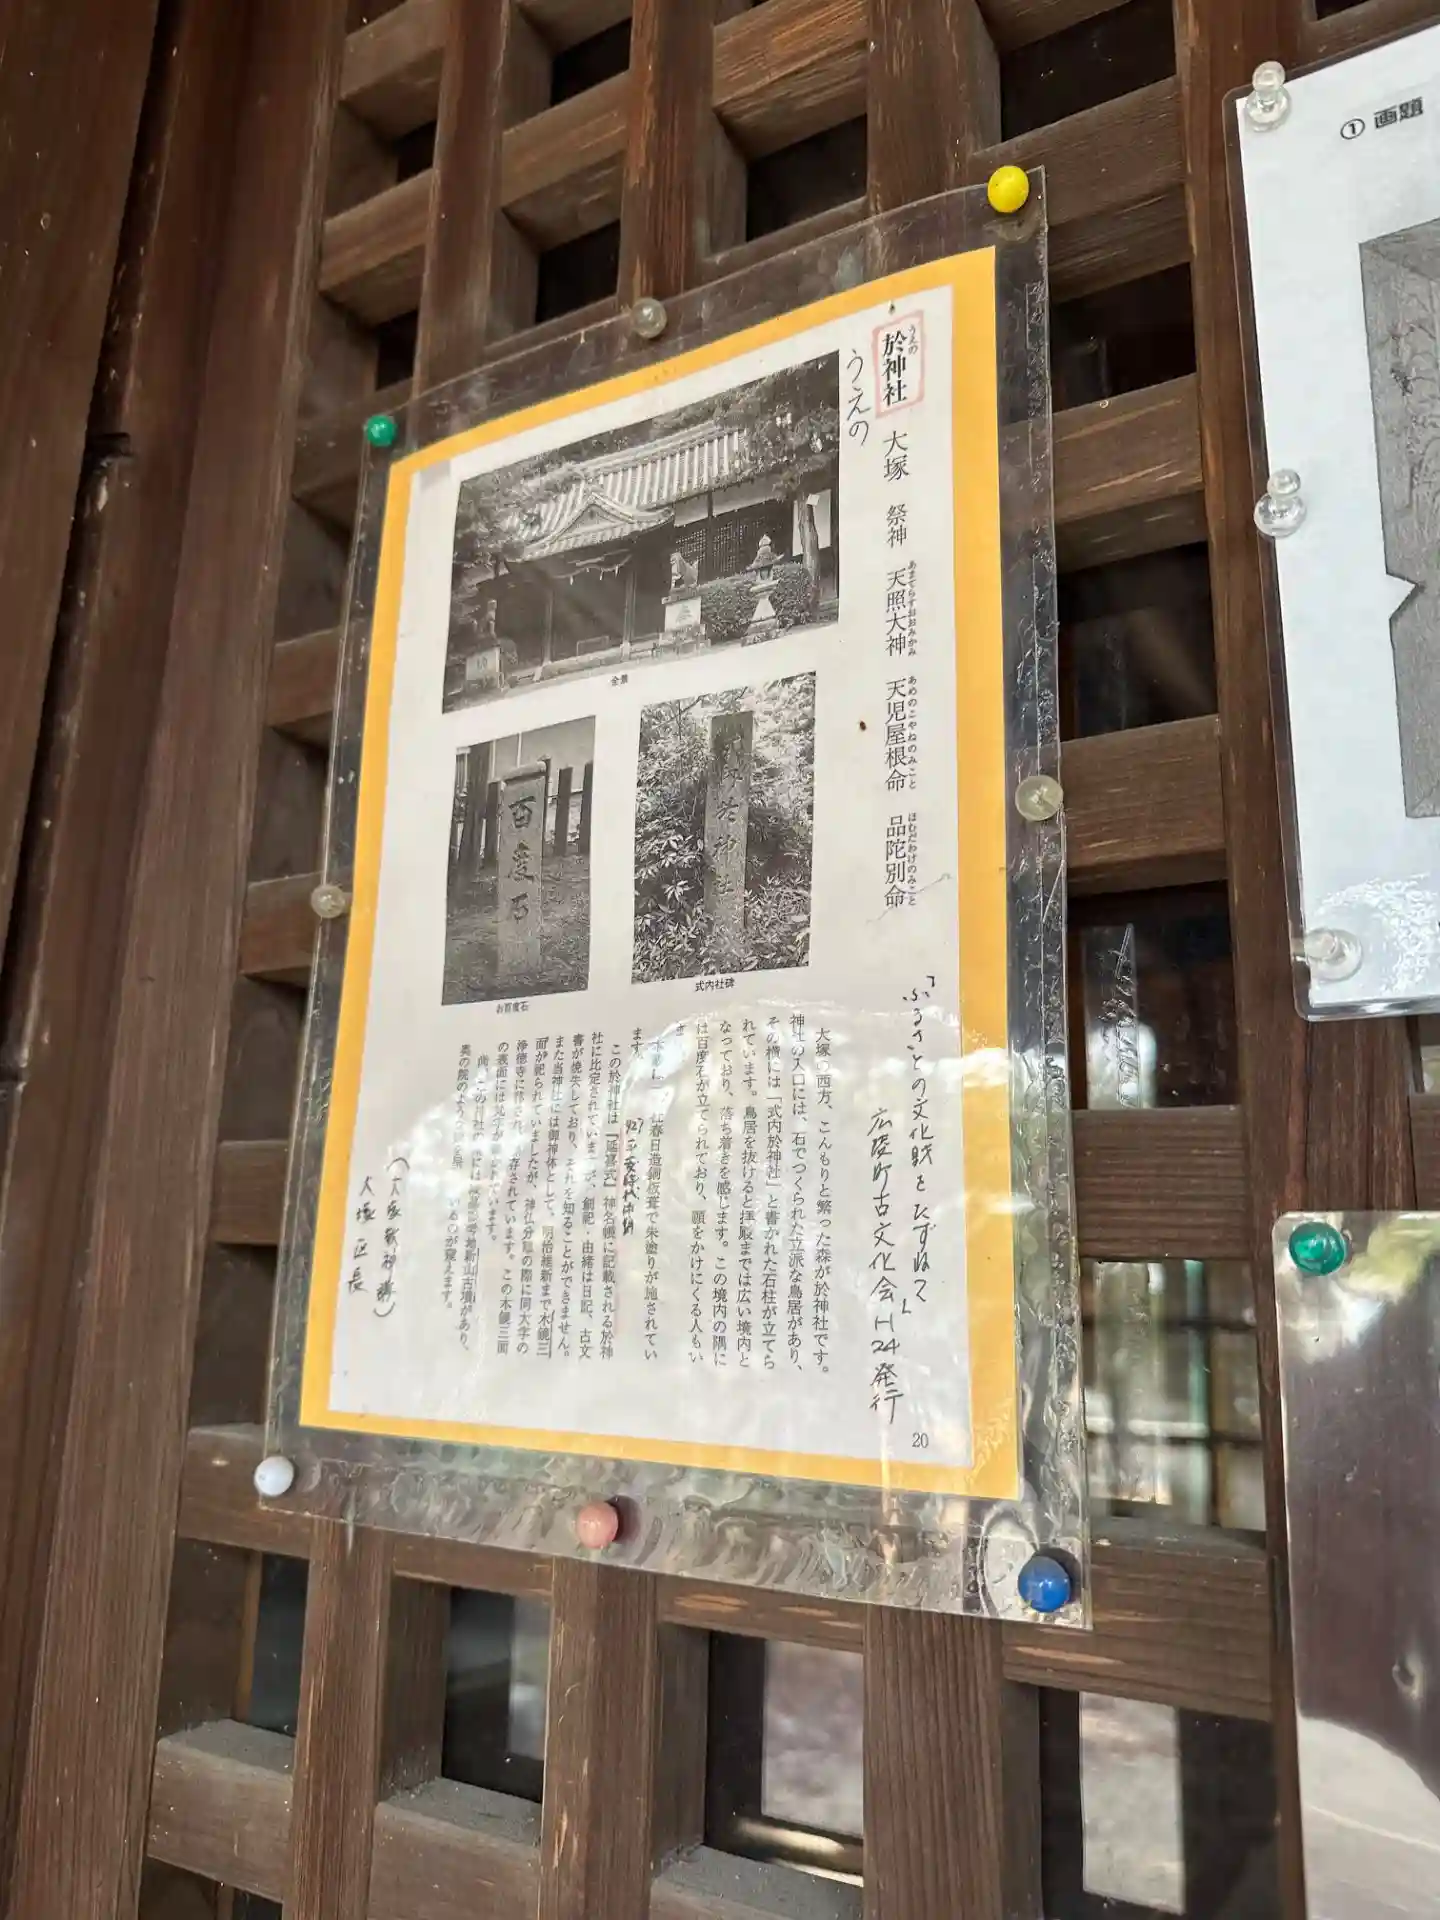 ① 画題
於神社 大塚 祭神 天照大神 天児屋根命 品陀別命
うえの
あまてらすおおみかみ
あめのこやねのみこと
ほむだわけのみこと
うえの
全景
お百度石
百度石
式内社碑
「ふるさとの文化財をたずねて」
広陵町古文化会 H24発行
大塚の西方、こんもりと繁った森が於神社です。
神社の入口には、石でつくられた立派な鳥居があり、
その横には「式内於神社」と書かれた石柱が立てら
れています。鳥居を抜けると拝殿までは広い境内と
なっており、落ち着きを感じます。この境内の隅に
は百度石が立てられており、願をかけにくる人もい
ま
春日造銅板葺で朱塗りが施されてい
ます。
927 平安時代中期
この於神社は『延喜式』神名帳に記載される於神
社に比定されていますが、創祀・由緒は日記、古文
書が焼失しており、それを知ることができません。
また当神社には御神体として、明治維新まで木鏡三
面が祀られていましたが、神仏分離の際に同大字の
浄徳寺に移され、保存されています。この木鏡三面
の表面には梵字が書かれています。
新山古墳があり、
奥の院のような
いるのが窺えます。
大塚区長
20